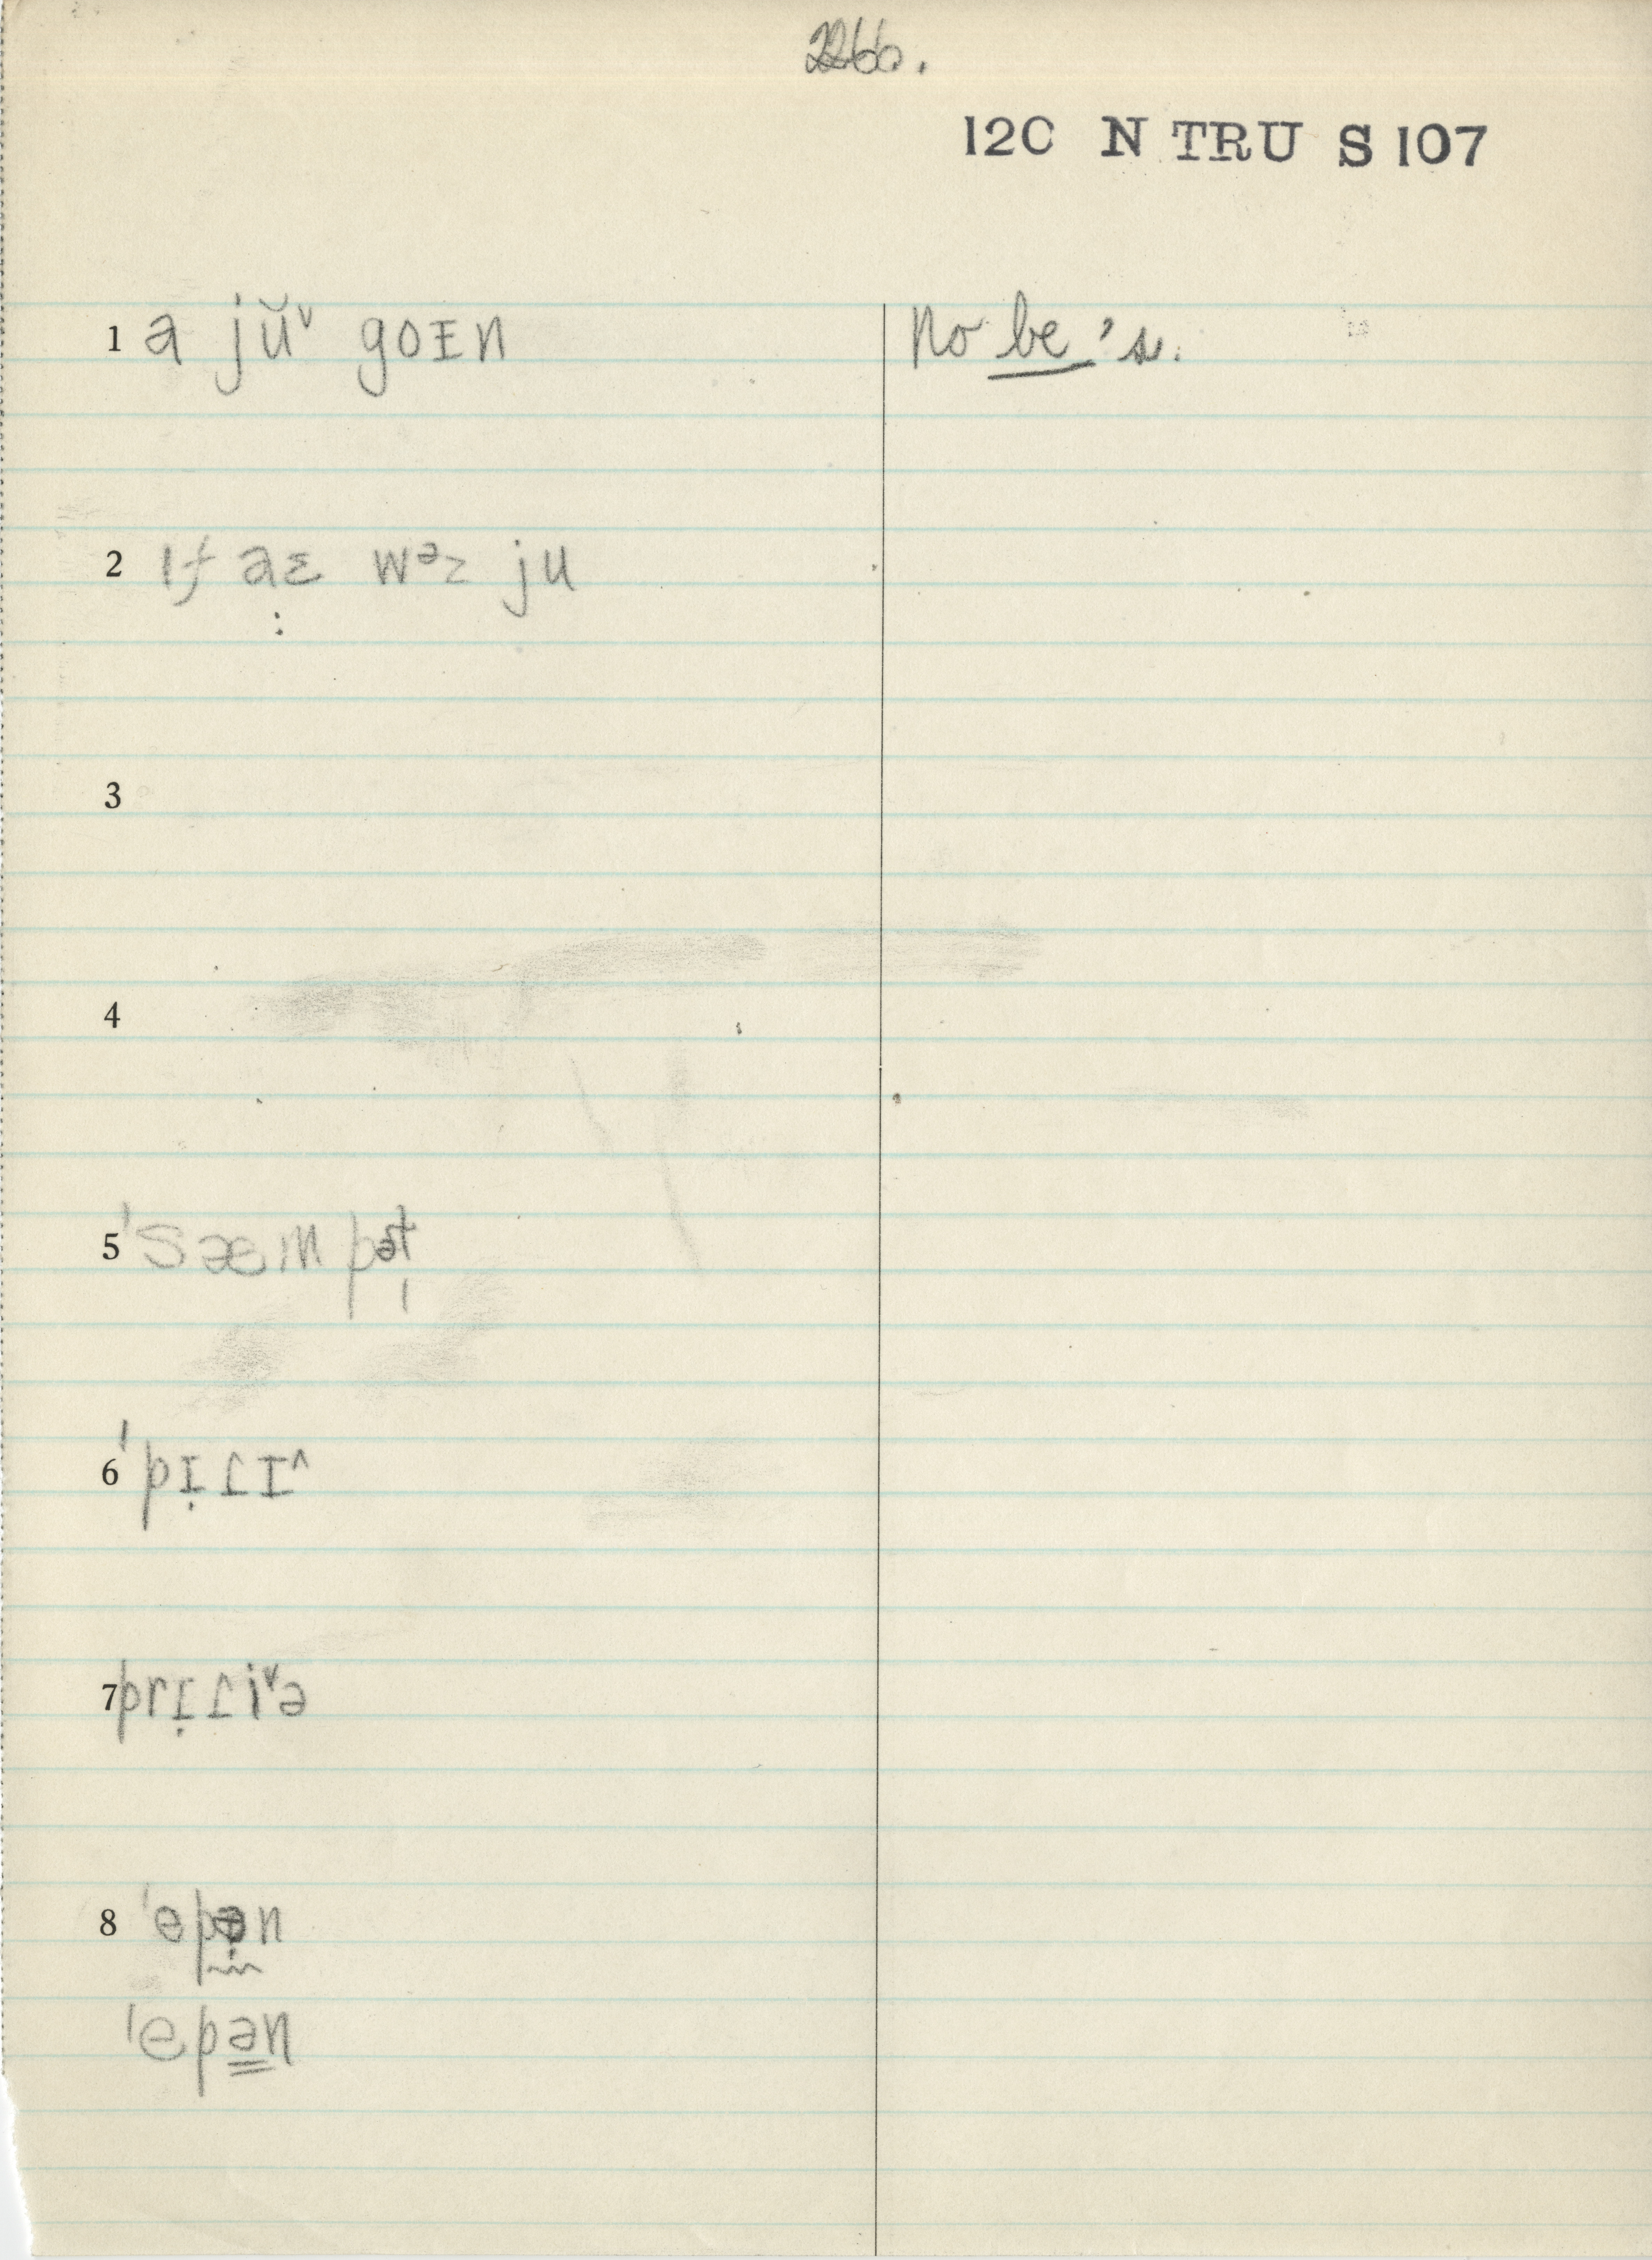 226b.
12C N TRU S 107
1 a jŭᵛ goɪn No be's.
2 ɪf aɛ wᵊz ju
3
4
5 ˈsæɪm pət̩
6 ˈpɪ̣ɾɪ^
7 prɪ̣ɾiᵛə
8 ˈepə̣n
ˈepə̳n